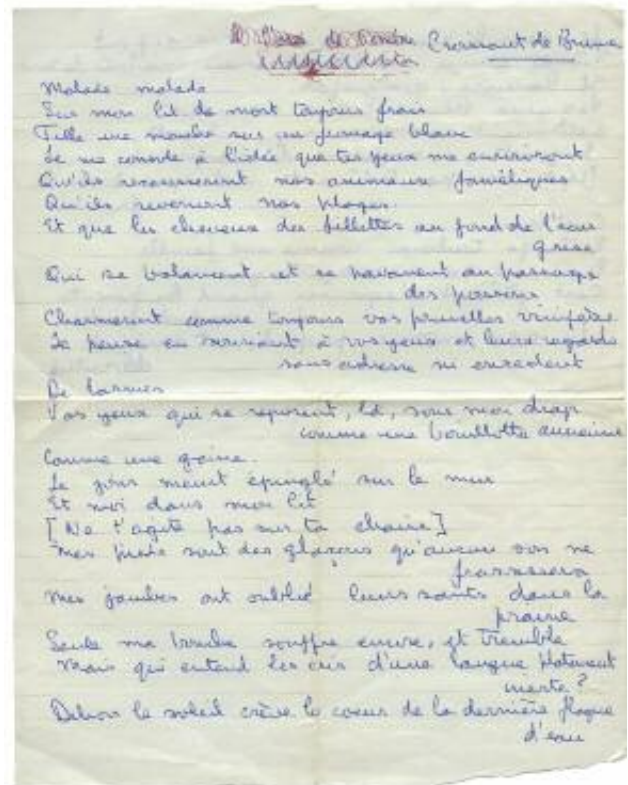 Croissant de Brume
Malade malade
Sur mon lit de mort toujours frais
Telle une mouche sur un fromage blanc
Je me console à l'idée que tes yeux me
Qu'ils nos animaux faméliques
Qu'ils nos plages
Et que les cheveux des fillettes au fond de l'eau
grise
Qui se balancent et se pavanent au passage
des poissons
Charmeront comme toujours vos prunelles
Je pense en souriant à vos yeux et leurs regards
sans adresse
De larmes
Vos yeux qui se reposent, là, sous mon drap
comme une bouillotte ancienne
Comme une graine.
Le gris meurt épinglé sur le mur
Et moi dans mon lit
[Ne t'agite pas sur ta chaise]
Mes pieds sont des glaçons qu'aucun son ne
Mes jambes ont oublié leurs sauts dans la
prairie
Seule ma souffre encore, et tremble
Mais qui entend les cris d'une langue
inerte?
Dehors le soleil crève le coeur de la dernière flaque
d'eau